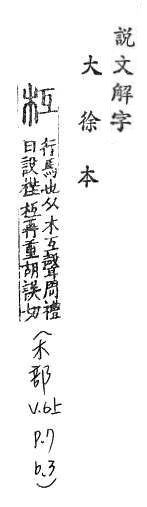 説文解字
大徐本
枑
行馬也从木互聲周禮
曰設梐枑再重胡誤切
(木部
v.6上
p.7
b.3)